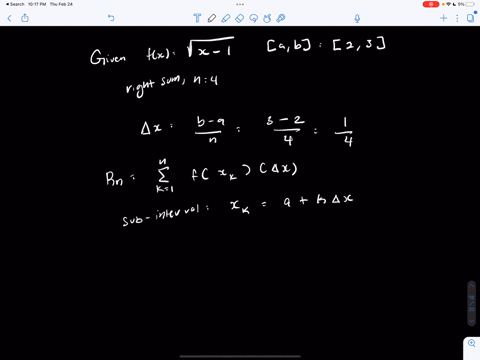 Search 10:17 PM Thu Feb 24 5%
Given f(x) = √(x-1) [a,b] = [2,3]
right sum, n=4
Δx = (b-a)/n = (3-2)/4 = 1/4
Rn = Σ_{k=1}^{n} f(x_k)(Δx)
sub-interval: x_k = a + kΔx